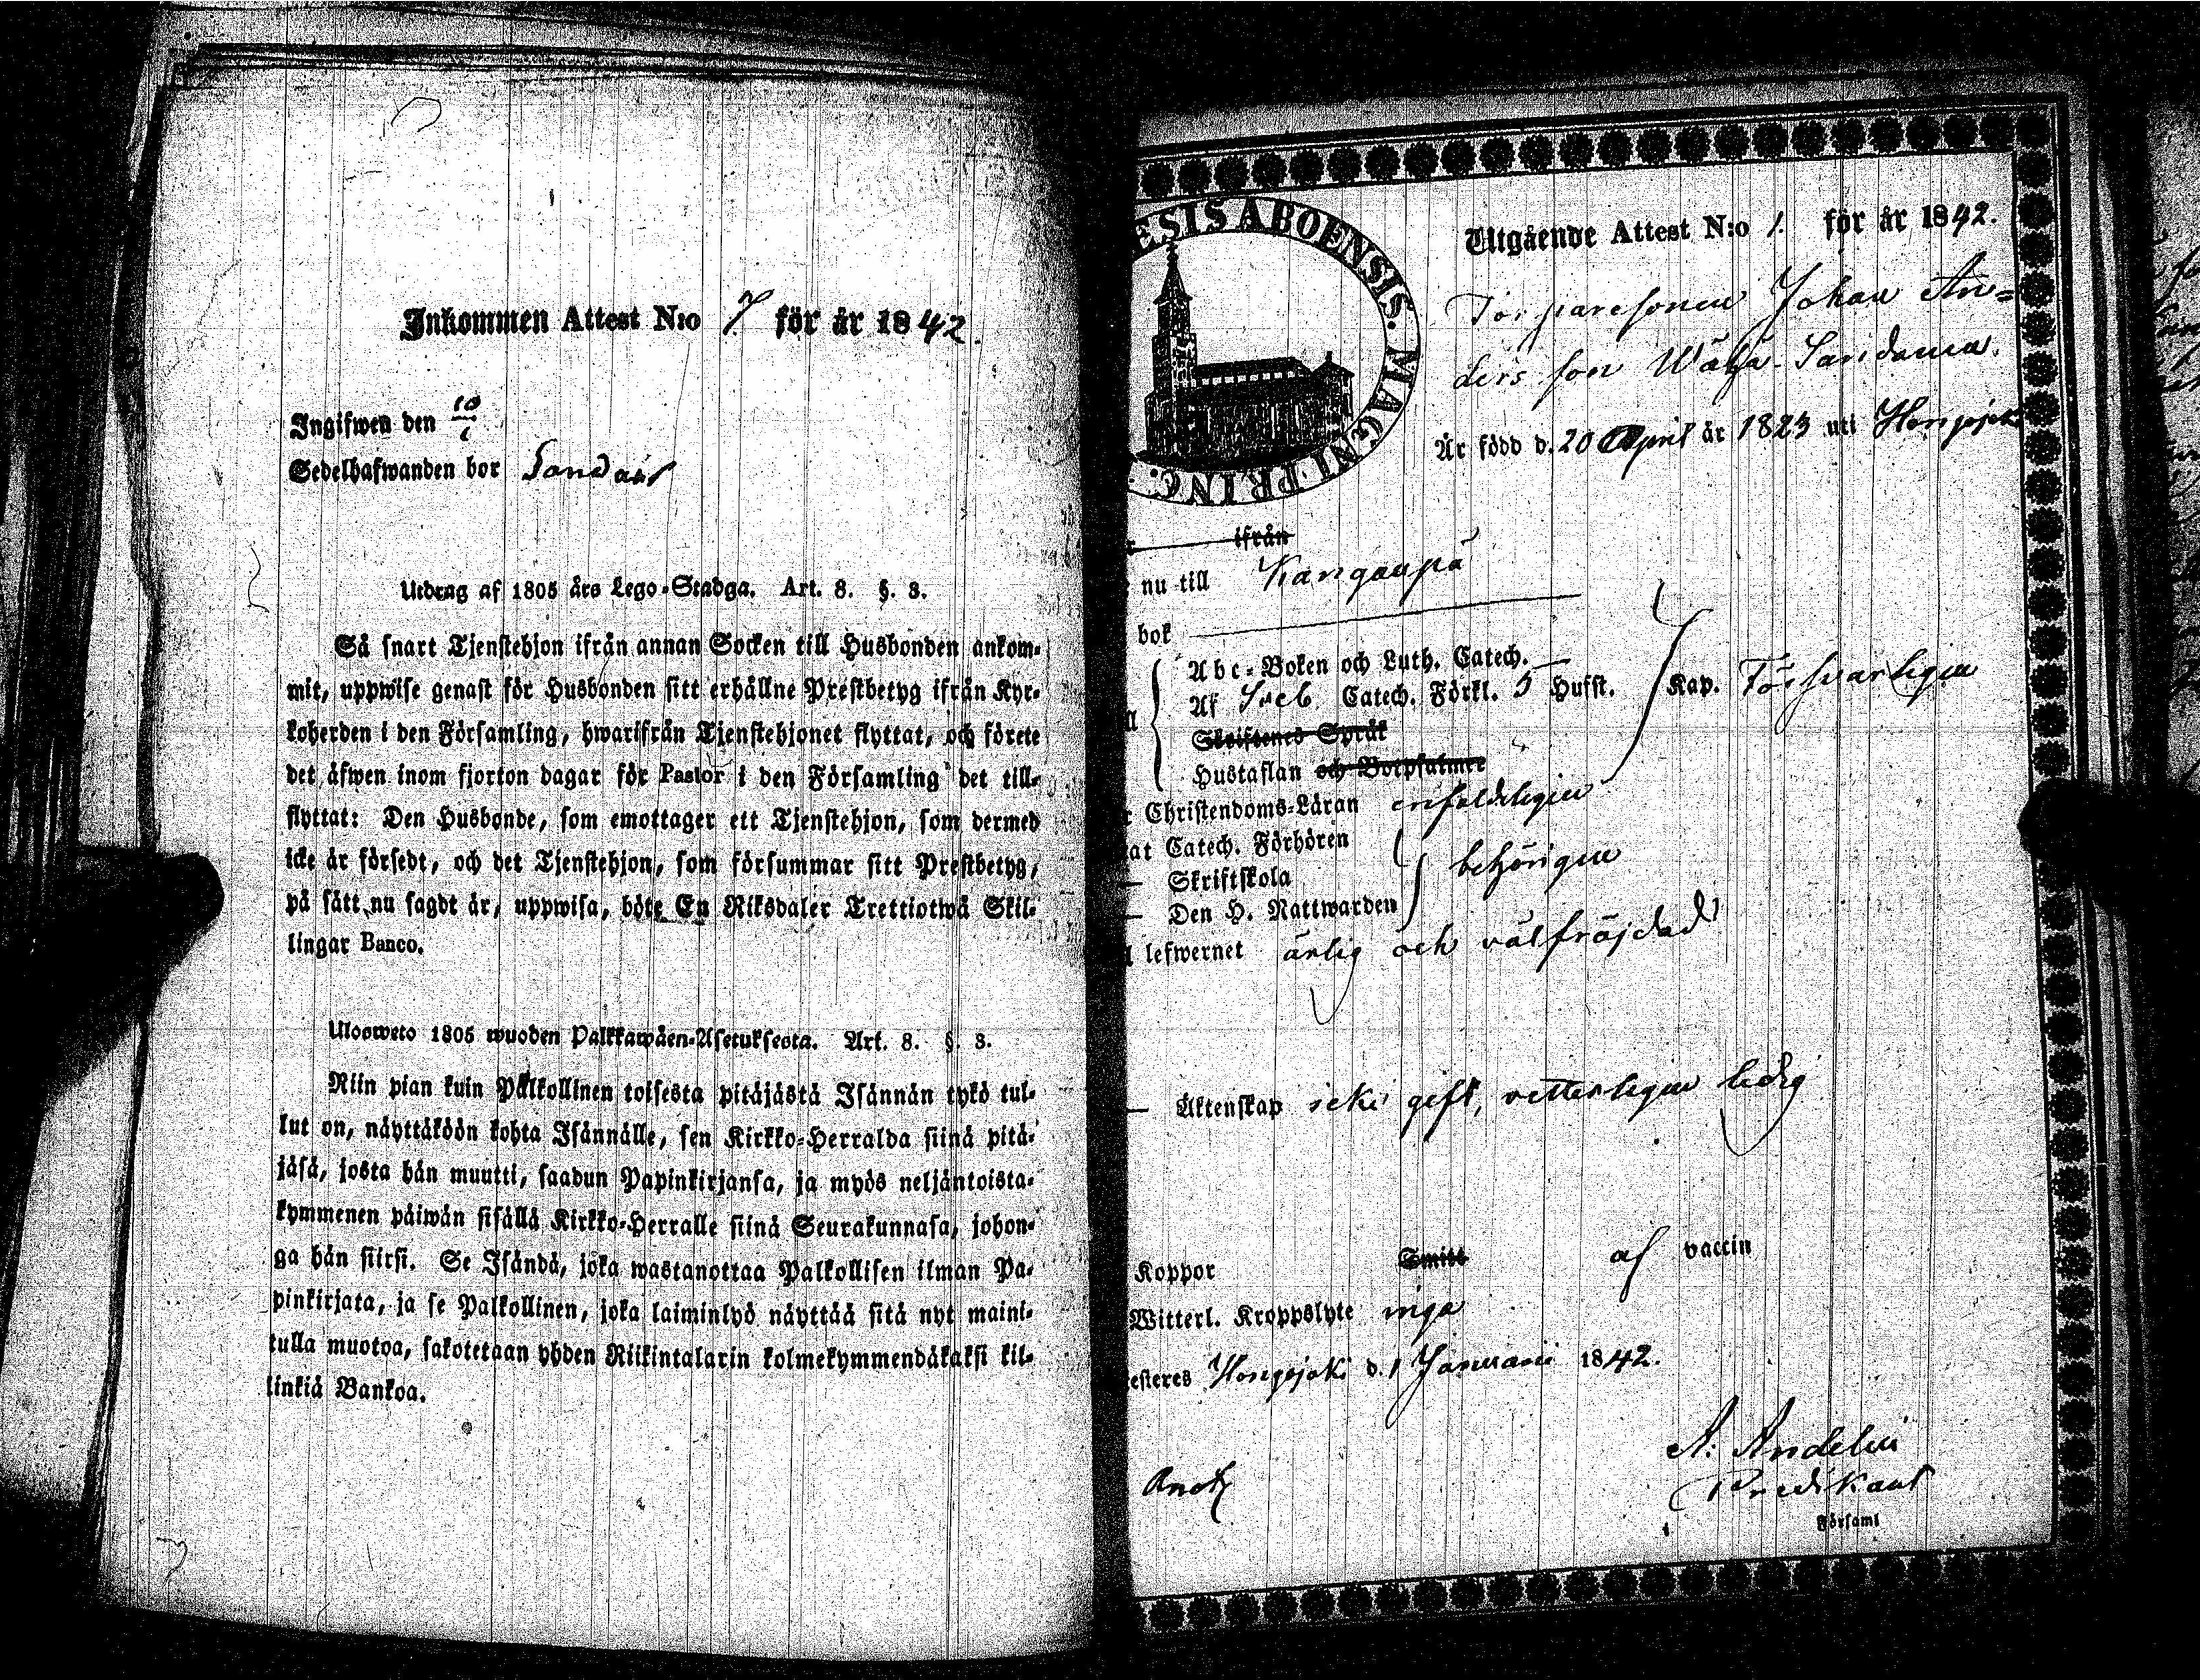 Inkommen Attest N:o 7. för år 1842.
Ingifwen den 10/1
Sedelhafwanden bor
Utdrag af 1805 års Lego-Stadga. Art. 8. §. 3.
Så snart Tjenstehjon ifrån annan Socken till Husbonden ankom-
mit, uppwise genast för Husbonden sitt erhållne Prestbetyg ifrån Kyr-
koherden i den Församling, hwarifrån Tjenstehjonet flyttat, och förete
det äfwen inom fjorton dagar för Pastor i den Församling det till-
flyttat: Den Husbonde, som emottager ett Tjenstehjon, som dermed
icke är försedt, och det Tjenstehjon, som försummar sitt Prestbetyg,
på sätt nu sagdt är, uppwisa, böte En Riksdaler Trettiotwå Skil-
lingar Banco.
Ulosweto 1805 wuoden Palkkawäen-Asetuksesta. Art. 8. §. 3.
Niin pian kuin Palkollinen toisesta pitäjästä Isännän tykö tul-
lut on, näyttäköön kohta Isännälle, sen Kirkko-Herralda siinä pitä-
jäsä, josta hän muutti, saadun Papinkirjansa, ja myös neljäntoista-
kymmenen päiwän sisällä Kirkko-Herralle siinä Seurakunnasa, johon-
ga hän siirsi. Se Isändä, joka wastanottaa Palkollisen ilman Pa-
pinkirjata, ja se Palkollinen, joka laiminlyö näyttää sitä nyt maini-
tulla muotoa, sakotetaan yhden Riikintalarin kolmekymmendäkaksi kil-
linkiä Bankoa.
ESIS ABOENSIS. MAGNI. PRINC.
Utgående Attest N:o 1. för år 1842.
Torparesonen Johan An=
ders son Wähä-Saridama.
Är född d. 20 April år 1823 uti Hongojoki
ifrån
nu till Kanganpä
bok
Abc-Boken och Luth. Catech. —
Af Sveb. Catech. Förkl. 5 Hufst. Kap. Försvarligen
Skriftenes Språk
Hustaflan och Botpsalmer
Christendoms-Läran enfaldeligen
at Catech. Förhören
— Skriftskola behörigen
— Den H. Nattwarden
lefwernet ärlig och välfräjdad
— Äktenskap icke gift, vetterligen ledig
Koppor Smitt af vaccin
Witterl. Kroppslyte inga
esteres Hongojoki d. 1 Januarii 1842.
A: Andelin
Predikant
Församl